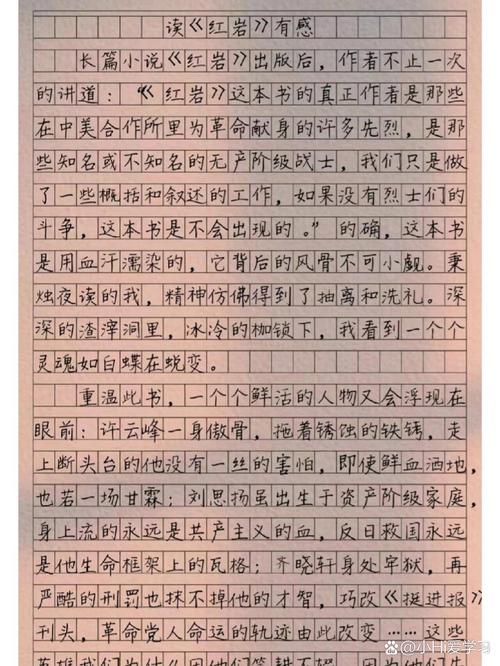 读《红岩》有感
长篇小说《红岩》出版后，作者不止一次
的讲道：“《红岩》这本书的真正作者是那些
在中美合作所里为革命献身的许多先烈，是那
些知名或不知名的无产阶级战士，我们只是做
了一些概括和叙述的工作，如果没有烈士们的
斗争，这本书是不会出现的。”的确，这本书
是用血汗濡染的，它背后的风骨不可小觑。秉
烛夜读的我，精神仿佛得到了抽离和洗礼。深
深的渣滓洞里，冰冷的枷锁下，我看到一个个
灵魂如白蝶在蜕变。
重温此书，一个个鲜活的人物又会浮现在
眼前：许云峰一身傲骨，拖着锈蚀的铁铐，走
上断头台的他没有一丝的害怕，即使鲜血洒地，
也若一场甘霖；刘思扬虽出生于资产阶级家庭，
身上流的永远是共产主义的血，反日救国永远
是他生命框架上的瓦格；齐晓轩身处牢狱，再
严酷的刑罚也抹不掉他的才智，巧改《挺进报》
刊头，革命党人命运的轨迹由此改变……这些
英雄我们为什
@小Hi爱学习